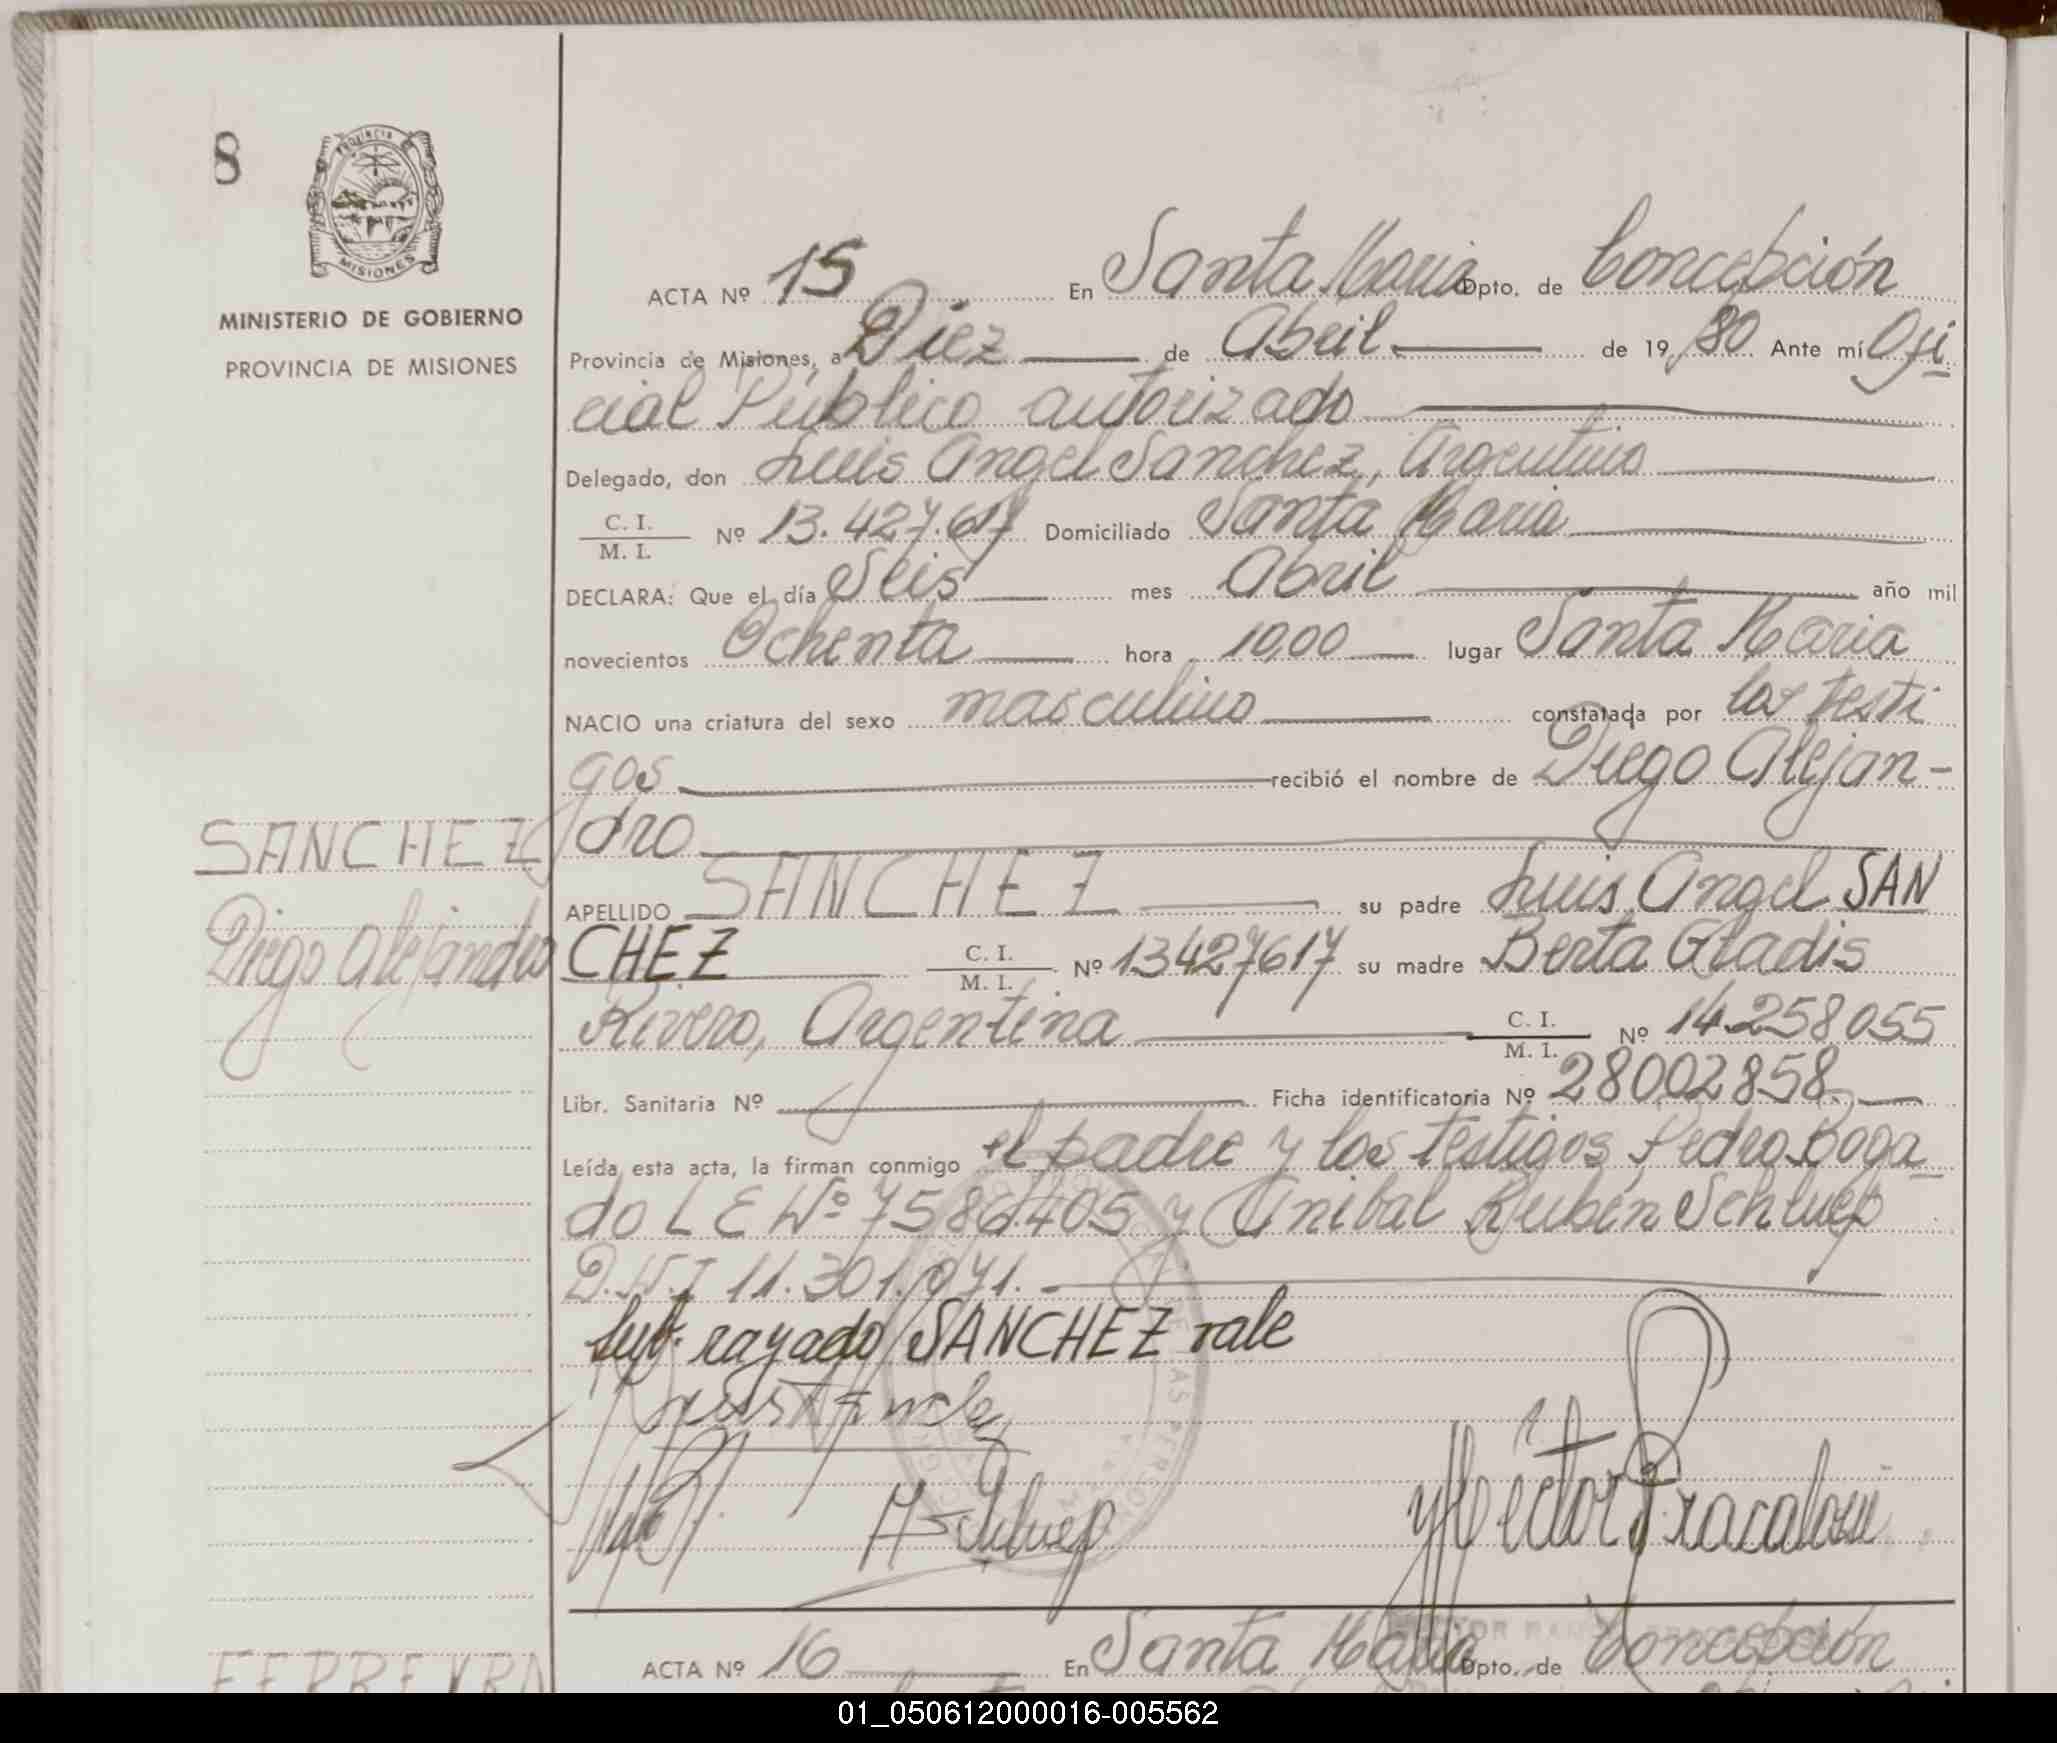 8
PROVINCIA
MISIONES
MINISTERIO DE GOBIERNO
PROVINCIA DE MISIONES
ACTA Nº 15 En Santa Maria Dpto. de Concepción
Provincia de Misiones, a Diez de Abril de 1980 Ante mí Ofi
cial Público autorizado
Delegado, don Luis Angel Sanchez, Argentino
C. I.
M. I. Nº 13.427.617 Domiciliado Santa Maria
DECLARA: Que el día Seis mes Abril año mil
novecientos Ochenta hora 10,00 lugar Santa Maria
NACIO una criatura del sexo masculino constatada por los testi
gos recibió el nombre de Diego Alejan-
dro
SANCHEZ
Diego Alejandro
APELLIDO SANCHEZ su padre Luis Angel SAN
CHEZ C. I. M. I. Nº 13427617 su madre Berta Gladis
Rivero, Argentina C. I. M. I. Nº 14.258055
Libr. Sanitaria Nº Ficha identificatoria Nº 28002858.
Leída esta acta, la firman conmigo el padre y los testigos, Pedro Boga
do L E Nº 7586405 y Anibal Rubén Schluep
D.N.I 11.301.971.-
Sub. rayado SANCHEZ vale
ACTA Nº 16 En Santa Maria Dpto. de Concepción
FERREYRA
01_050612000016-005562